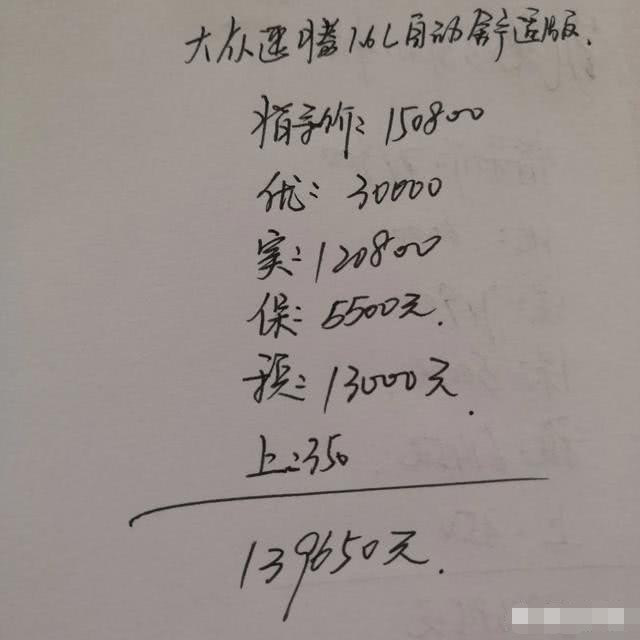 大众速腾1.6L自动舒适版.
指导价：150800
优：30000
实：120800
保：5500元.
税：13000元.
上：350
139650元.